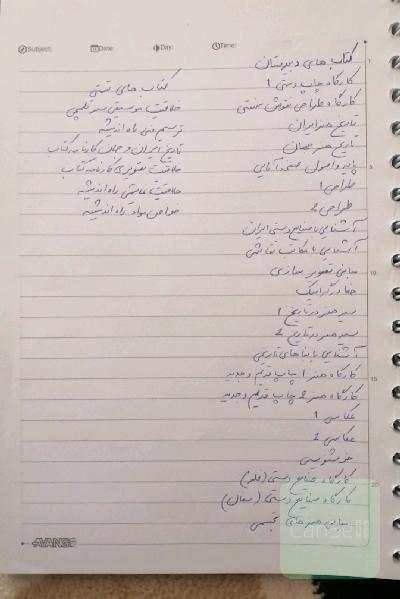 Subject: Date: Day: Time:
کتاب های دبیرستان
کارگاه چاپ دستی 1
کارگاه طراحی نقوش سنتی
تاریخ هنر ایران
تاریخ هنر جهان
پایه و اصول صفحه آرایی
طراحی 1
طراحی 2
آشنایی با صنایع دستی ایران
آشنایی با مکاتب نقاشی
مبانی تصویر سازی
خط در گرافیک
سیر هنر در تاریخ 1
سیر هنر در تاریخ 2
آشنایی با بناهای تاریخی
کارگاه هنر 1 چاپ قدیم و جدید
کارگاه هنر 2 چاپ قدیم و جدید
عکاسی 1
عکاسی 2
خوشنویسی
کارگاه صنایع دستی (فلز)
کارگاه صنایع دستی (سفال)
مبانی هنرهای تجسمی
کتاب های تستی
خلاقیت موسیقی سیر نظمی
ترسیم فنی راه اندیشه
تاریخ ایران و جهان کارنامه کتاب
خلاقیت تصویری کارنامه کتاب
خلاقیت نمایشی راه اندیشه
خواص مواد راه اندیشه
1
5
10
15
20
AVANGE